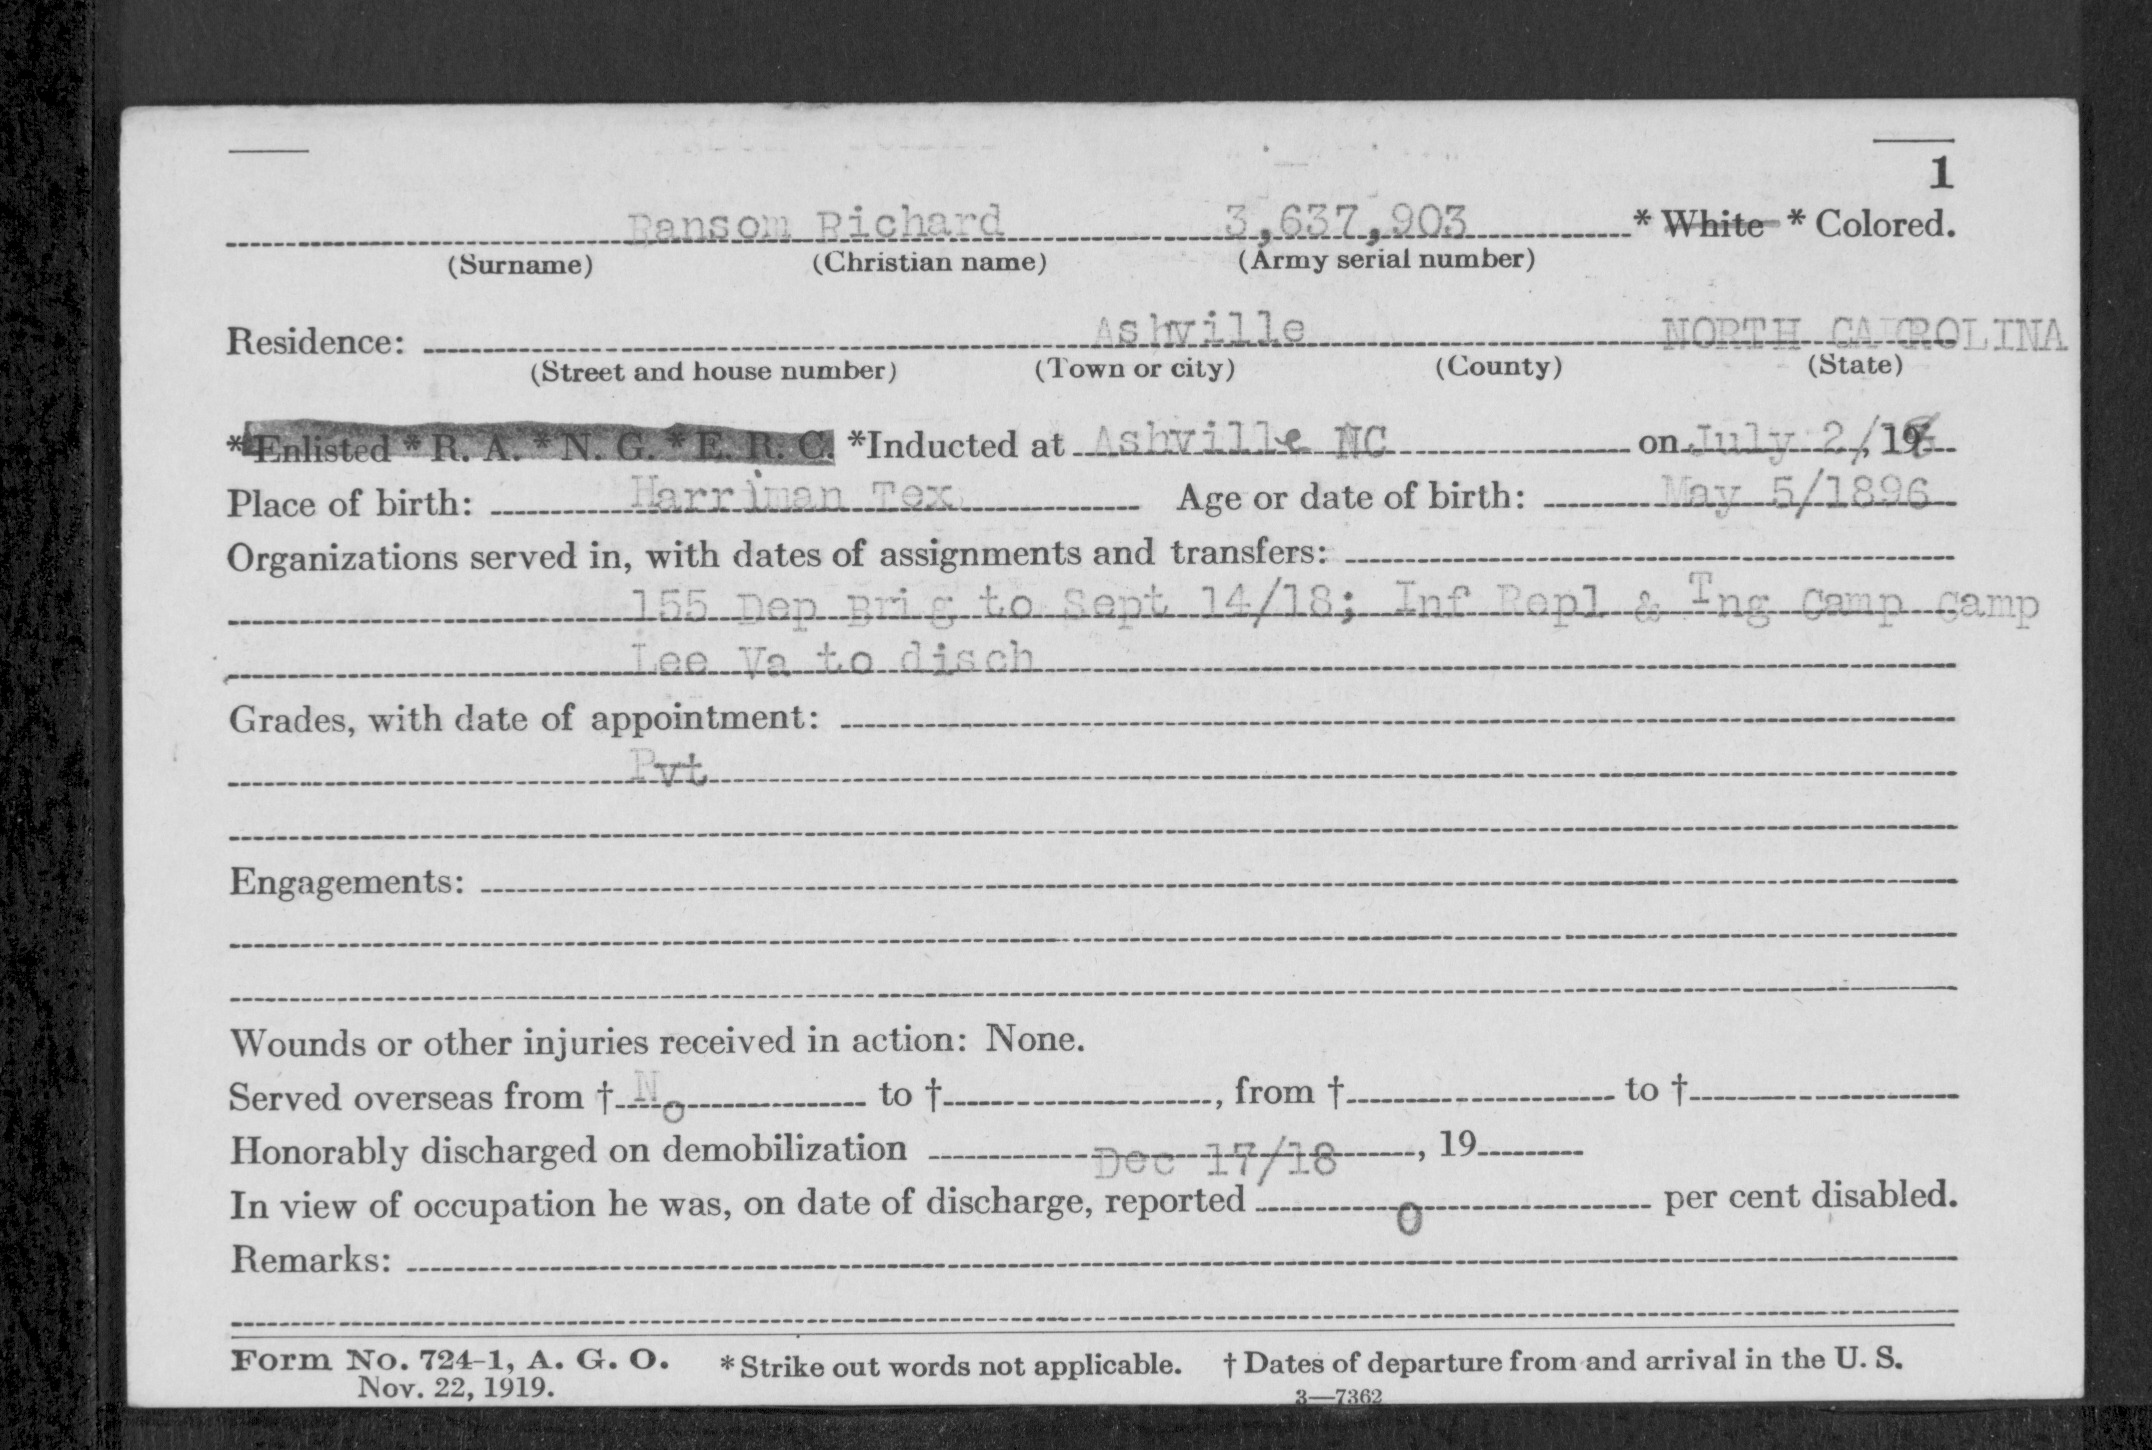 1
Ransom Richard 3,637,903 * White * Colored.
(Surname) (Christian name) (Army serial number)
Residence: Ashville NORTH CAROLINA
(Street and house number) (Town or city) (County) (State)
*Enlisted * R. A. * N. G. * E. R. C. *Inducted at Ashville NC on July 2/, 19
Place of birth: Harriman Tex Age or date of birth: May 5/1896
Organizations served in, with dates of assignments and transfers:
155 Dep Brig to Sept 14/18; Inf Repl & Tng Camp Camp
Lee Va to disch
Grades, with date of appointment:
Pvt
Engagements:
Wounds or other injuries received in action: None.
Served overseas from † No to †, from † to †
Honorably discharged on demobilization Dec 17/18, 19
In view of occupation he was, on date of discharge, reported 0 per cent disabled.
Remarks:
Form No. 724-1, A. G. O. * Strike out words not applicable. † Dates of departure from and arrival in the U. S.
Nov. 22, 1919. 3—7362